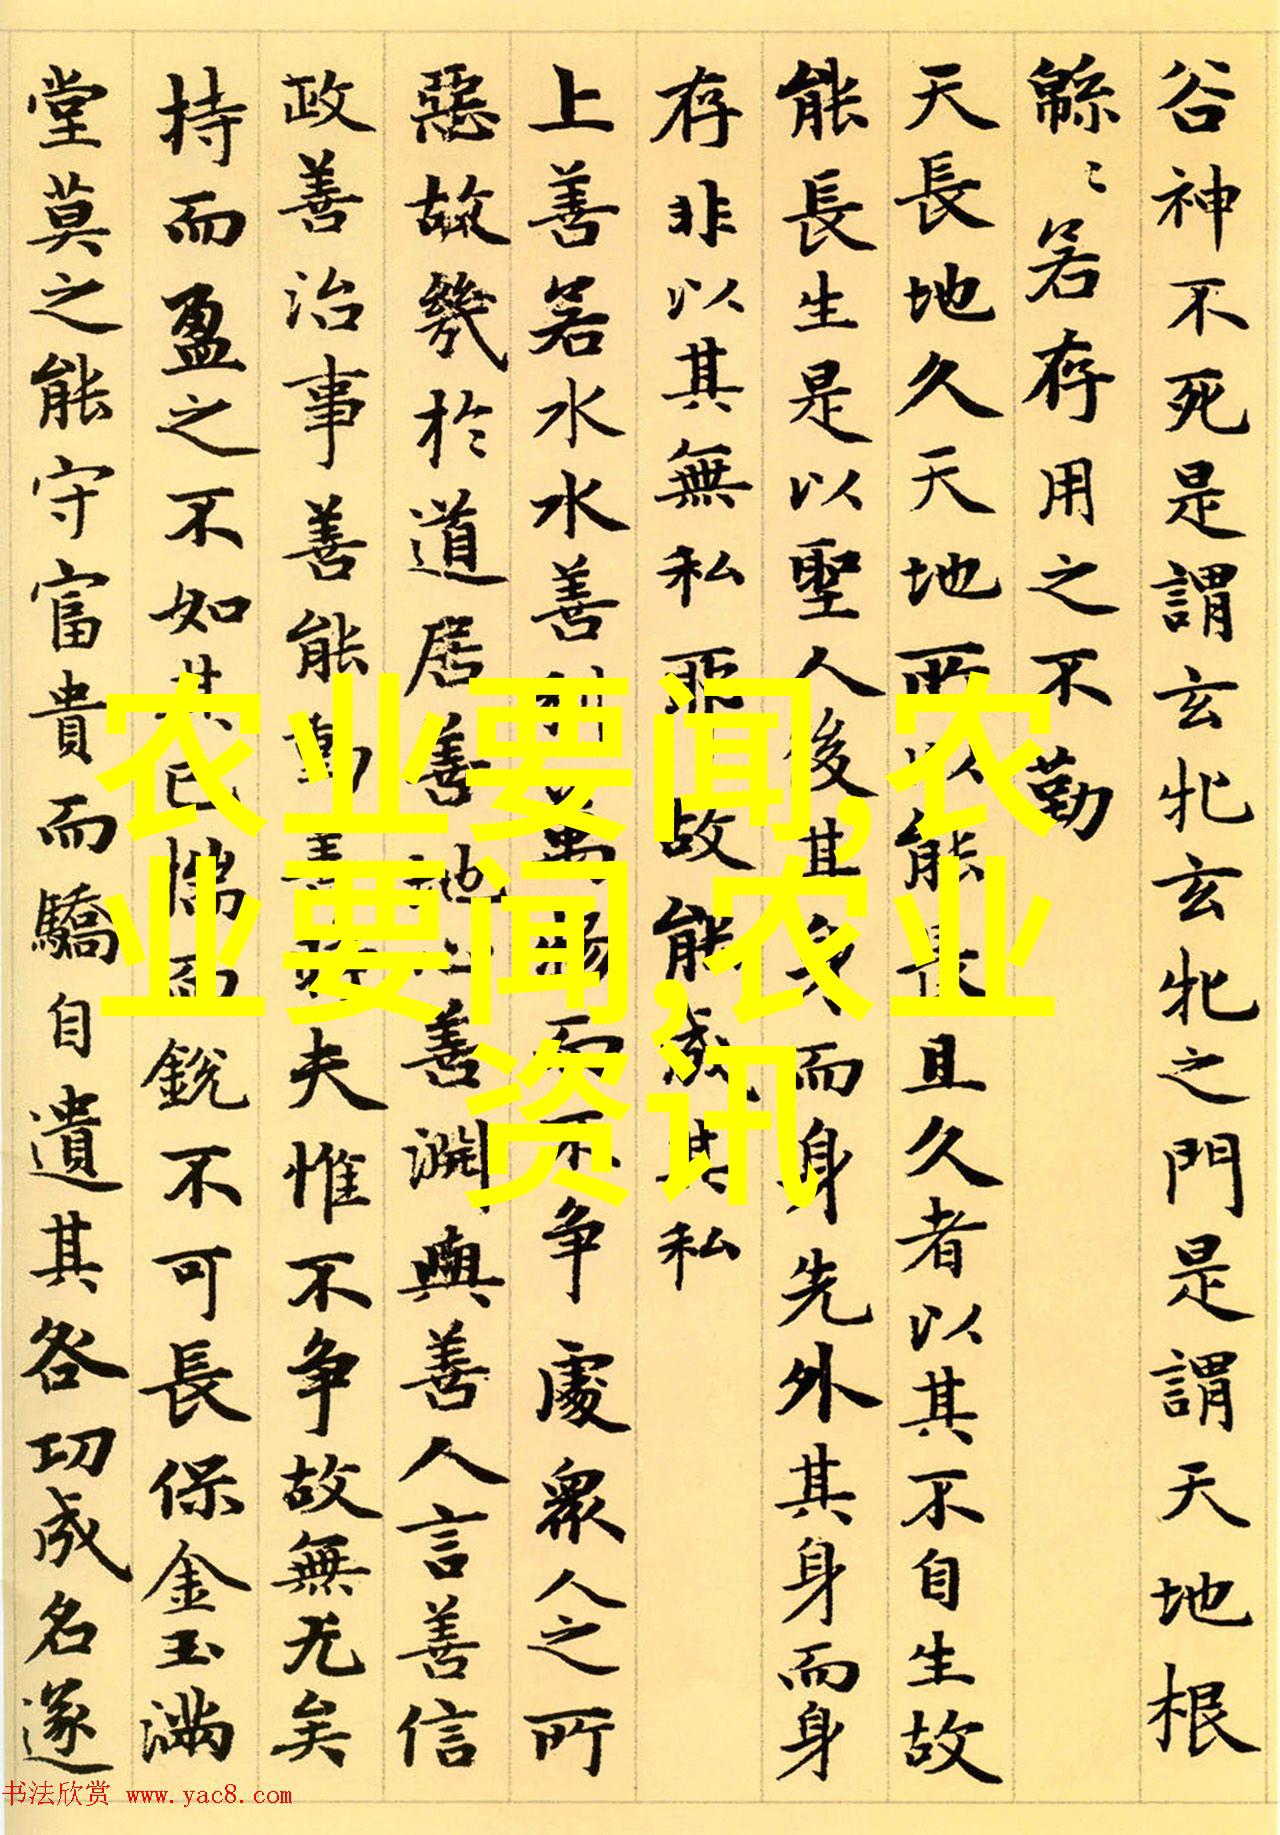 谷神不死是謂玄牝玄牝之門是謂天地根
緜〻若存用之不勤
天長地久天地所以能長且久者以其不自生故
能長生是以聖人後其身而身先外其身而身
存非以其無私耶故能成其私
上善若水水善利萬物而不争處衆人之所
惡故幾於道居善地心善淵與善人言善信
政善治事善能動善時夫惟不争故無尤矣
持而盈之不如其已揣而銳不可長保金玉滿
堂莫之能守富貴而驕自遺其咎功成名遂
农业要闻,农
业要闻,农业
资讯
书法欣赏 www.yac8.com